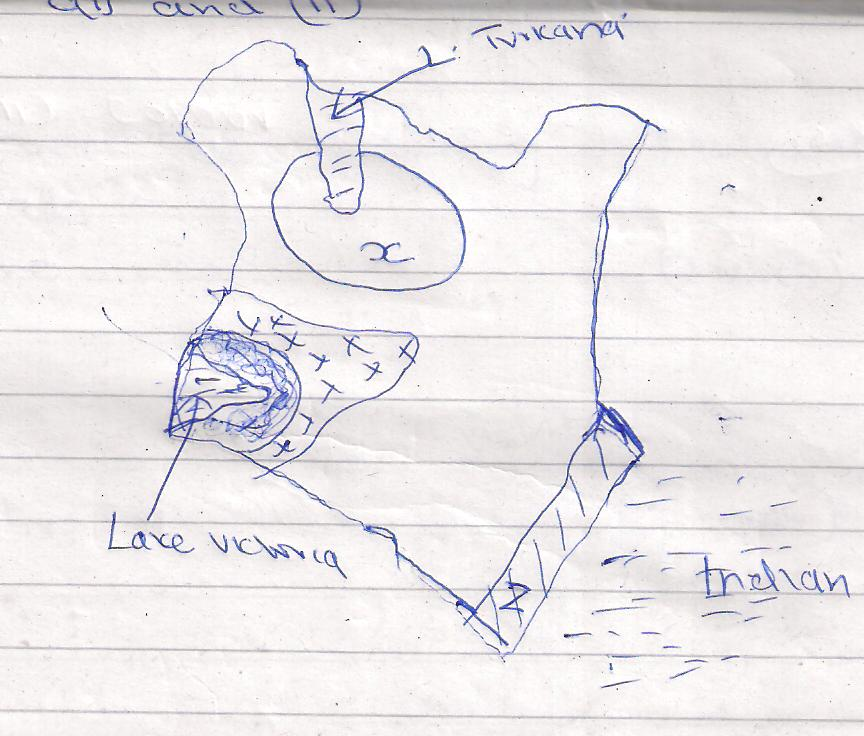 and (ii)
L. Turkana
x
Lake victoria
Z
Indian